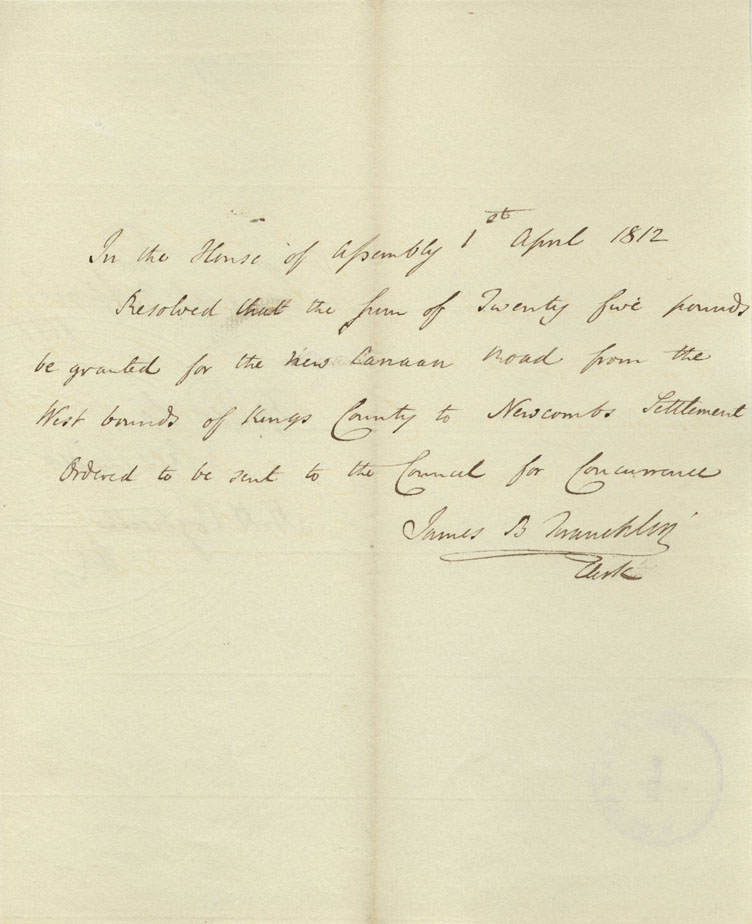 In the House of Assembly 1st April 1812
Resolved that the sum of Twenty five pounds
be granted for the New Canaan Road from the
West bounds of Kings County to Newcombs Settlement
Ordered to be sent to the Council for Concurrence
James B Francklin
Clerk